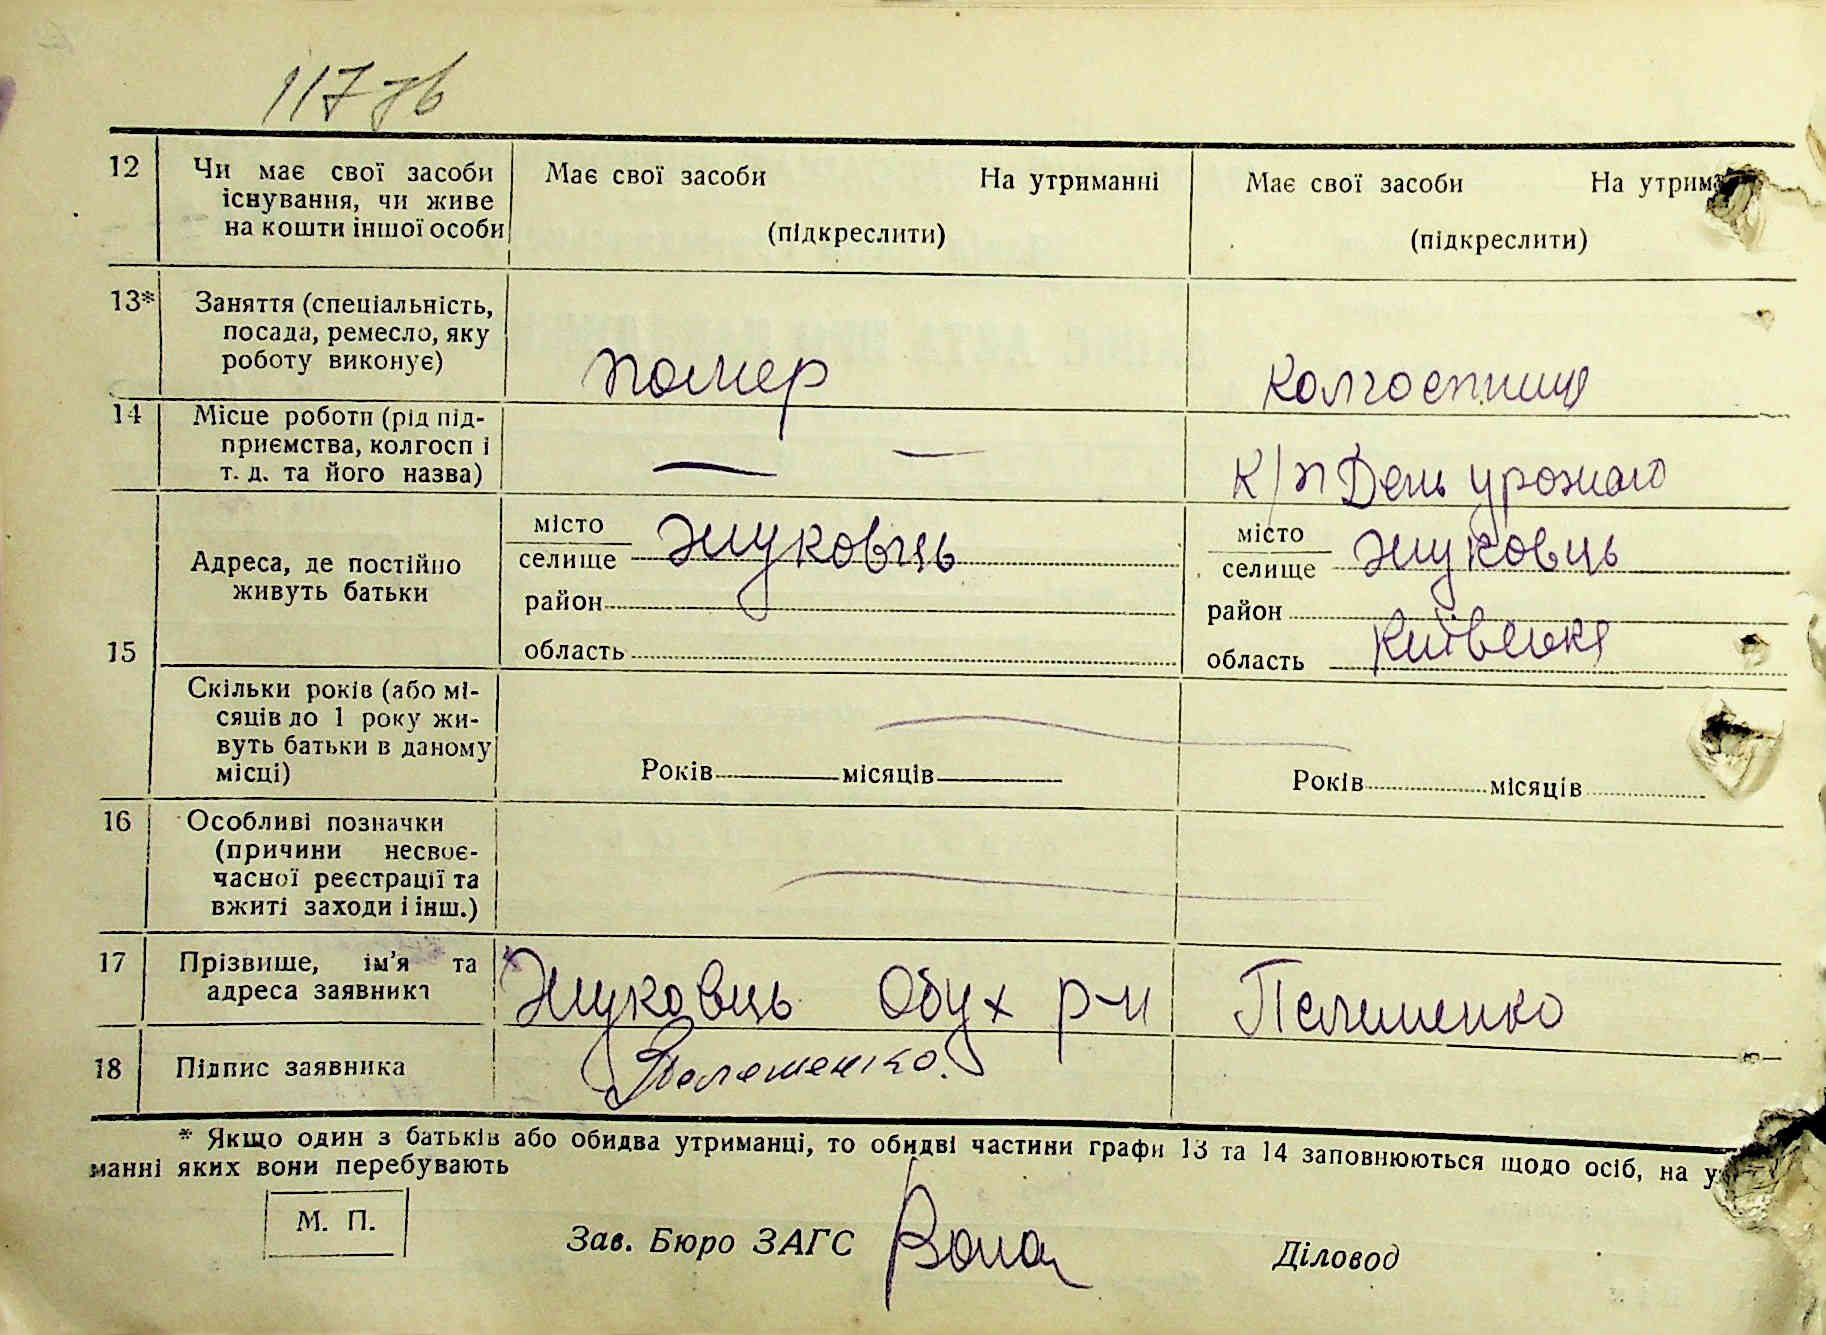 117 зв
12 Чи має свої засоби існування, чи живе на кошти іншої особи
Має свої засоби На утриманні
(підкреслити)
Має свої засоби На утрима
(підкреслити)
13* Заняття (спеціальність,
посада, ремесло, яку
роботу виконує)
помер
колгоспниця
14 Місце роботи (рід під-
приємства, колгосп і
т. д. та його назва)
— —
к/п День урожаю
15
Адреса, де постійно
живуть батьки
місто
селище Жуковць
район
область
місто
селище Жуковць
район
область Київська
Скільки років (або мі-
сяців до 1 року жи-
вуть батьки в даному
місці)
Років місяців
Років місяців
16 Особливі позначки
(причини несвоє-
часної реєстрації та
вжиті заходи і інш.)
17 Прізвище, ім'я та
адреса заявника
Жуковць Обух р-н Пелешенко
18 Підпис заявника
Пелешенко.
* Якщо один з батьків або обидва утриманці, то обидві частини графи 13 та 14 заповнюються щодо осіб, на у
манні яких вони перебувають
М. П.
Зав. Бюро ЗАГС
Діловод